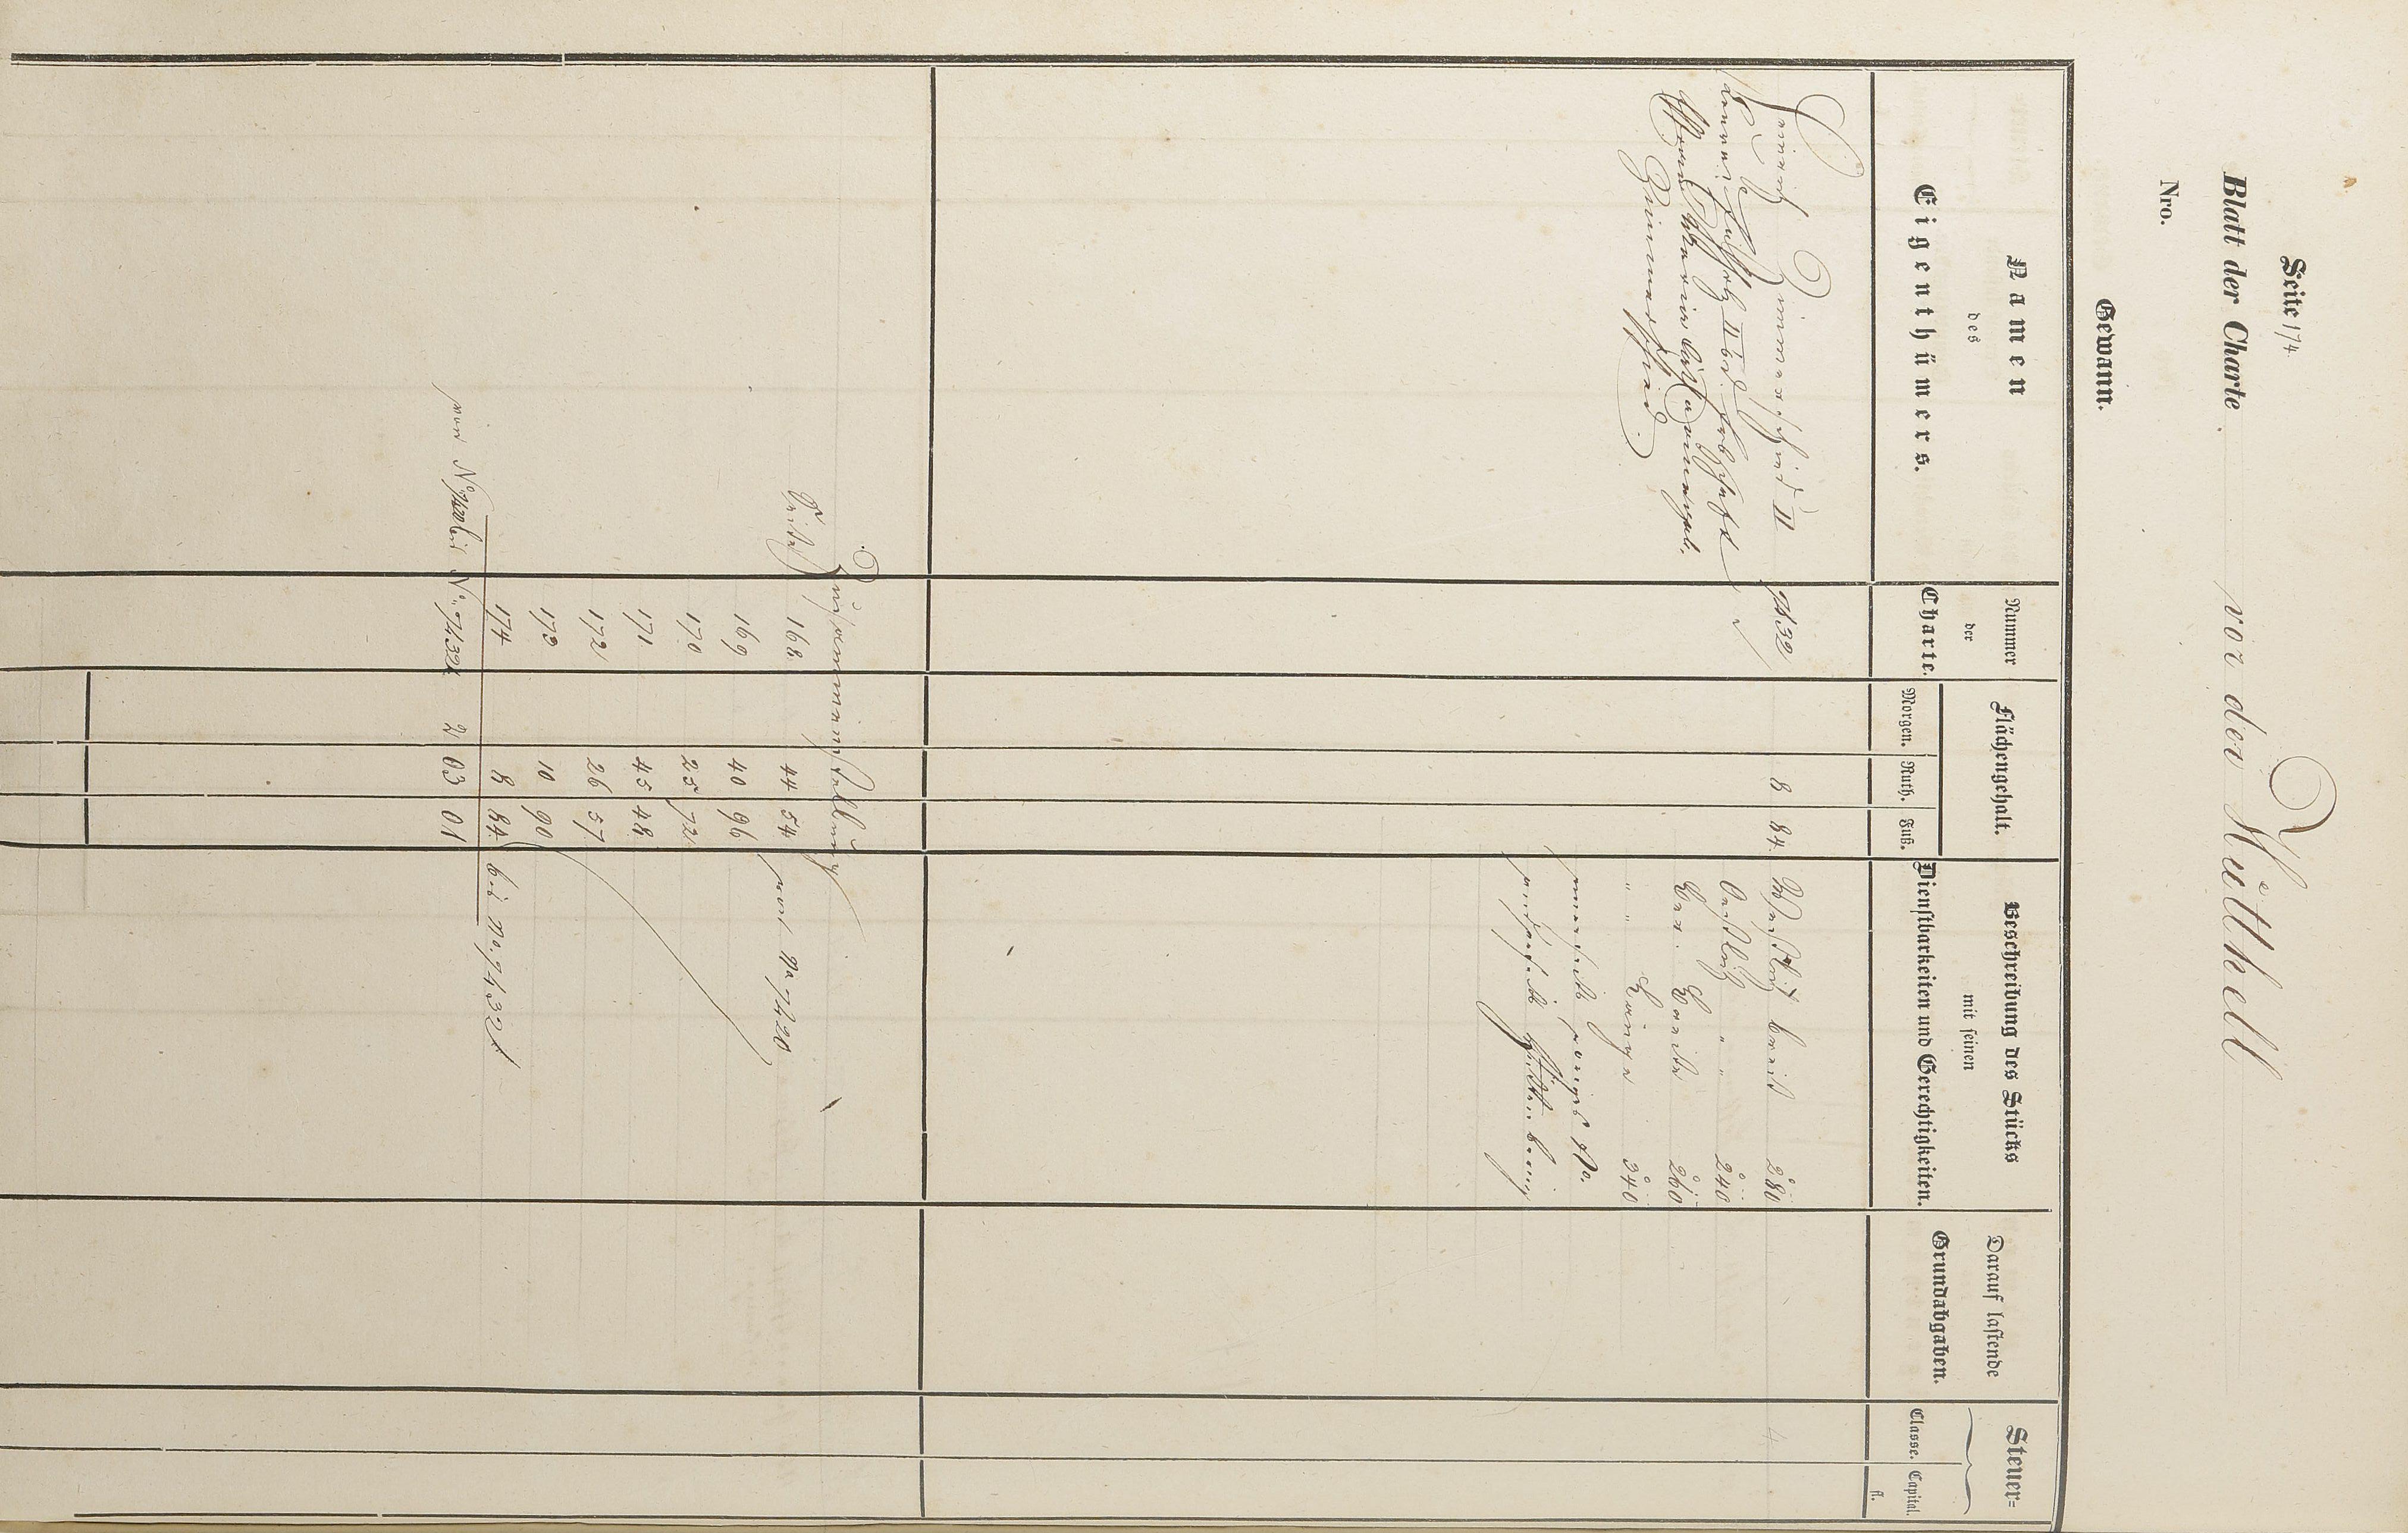 Seite 174
Blatt der Charte
vor der Hütthell
Nro.
Gewann.
Namen
des
Eigenthümers.
Nummer
der
Charte.
Flächengehalt.
Morgen. Ruth. Fuß.
Beschreibung des Stücks
mit seinen
Dienstbarkeiten und Gerechtigkeiten.
Darauf lastende
Grundabgaben.
Steuer=
Classe. Capital.
fl.
Heinrich Zimmerschied II 7432 8 84 Westlich breit 280
II Ostlich " " 240
Frau Maria 260
Zimmerschied. " " Länge 340
No.
Zusammenstellung
Seite 168 44 54 von No 7420
169 40 96
170 25 72
171 45 48
172 26 57
173 10 90
174 8 84 bis No. 7432
von No 7420 bis No. 7432 2 03 01